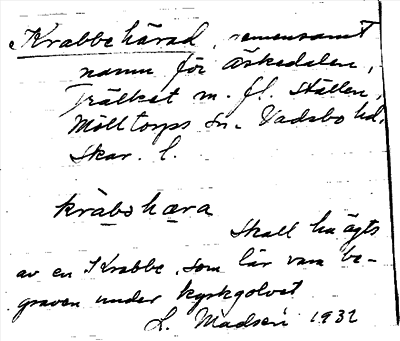 Krabbehärad, gemensamt
namn för Äskedalen,
Trälket m. fl. ställen,
Mölltorps sn. Vadsbo hd.
Skar. l.
kràbohæra
Skall ha ägts
av en Krabbe, som lär vara be-
graven under kyrkgolvet
L. Madsén 1932